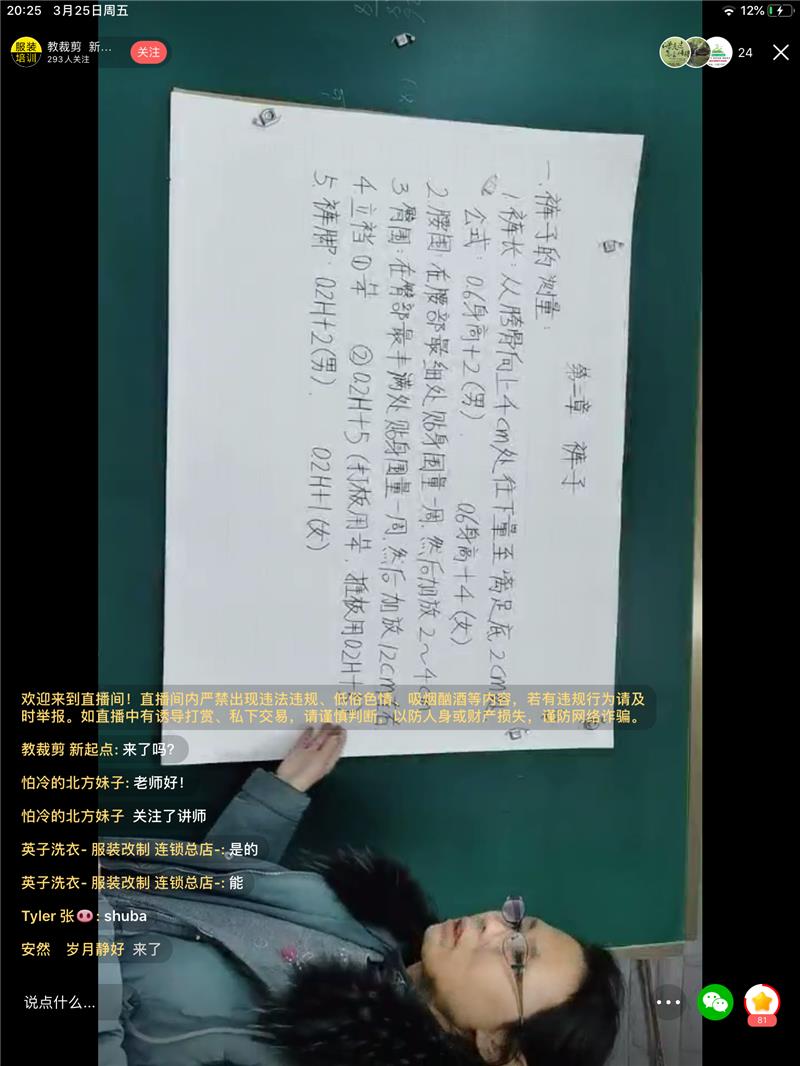 20:25 3月25日周五
12%
服装
培训
教裁剪 新...
293人关注
关注
24
第二章 裤子
一、裤子的测量：
1 裤长：从胯骨向上4cm处往下量至离足底2cm
公式：0.6身高+2(男) 0.6身高+4(女)
2. 腰围：在腰部最细处贴身围量一周，然后加放2~4c
3 臀围：在臀部最丰满处贴身围量一周，然后加放12cm
4 立裆 ② 0.2H+5 (打板用 推板用0.2H+
5. 裤脚：0.2H+2(男)． 0.2H+1(女)
欢迎来到直播间！直播间内严禁出现违法违规、低俗色情、吸烟酗酒等内容，若有违规行为请及
时举报。如直播中有诱导打赏、私下交易，请谨慎判断，以防人身或财产损失，谨防网络诈骗。
教裁剪 新起点: 来了吗？
怕冷的北方妹子: 老师好！
怕冷的北方妹子 关注了讲师
英子洗衣- 服装改制 连锁总店-: 是的
英子洗衣- 服装改制 连锁总店-: 能
Tyler 张🐽: shuba
安然 岁月静好 来了
说点什么...
81